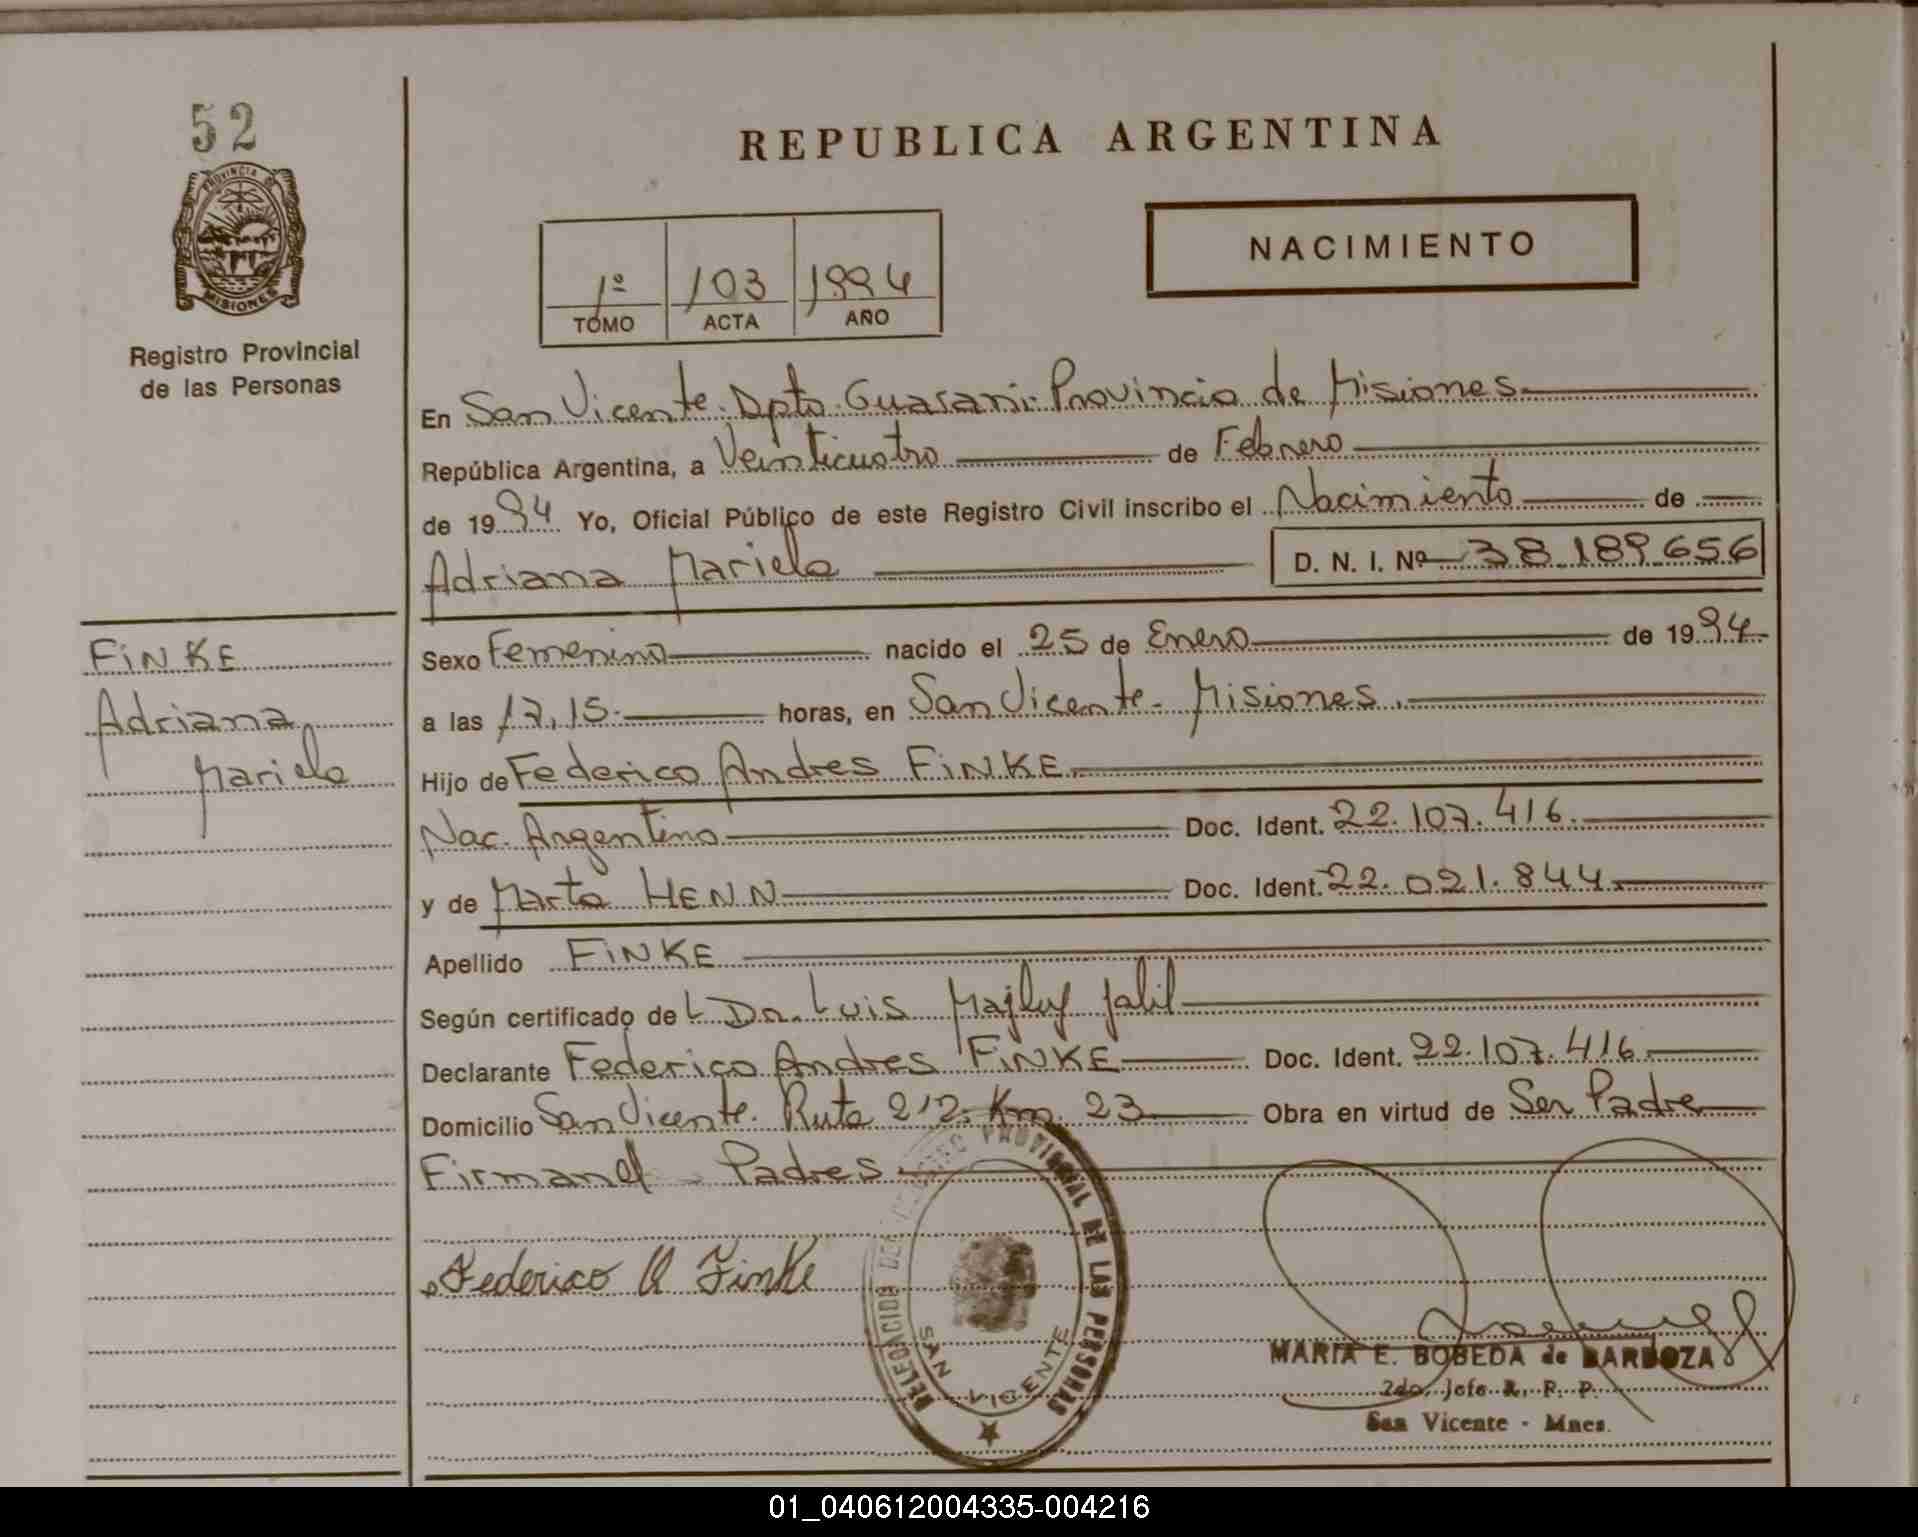 52
PROVINCIA DE
MISIONES
Registro Provincial
de las Personas
FINKE
Adriana
Mariela
REPUBLICA ARGENTINA
NACIMIENTO
1º 103 1994
TOMO ACTA AÑO
En San Vicente. Dpto. Guarani. Provincia de Misiones
República Argentina, a Veinticuatro de Febrero
de 1994 Yo, Oficial Público de este Registro Civil inscribo el Nacimiento de
Adriana Mariela D. N. I. Nº 38.189.656
Sexo Femenino nacido el 25 de Enero de 1994
a las 17,15. horas, en San Vicente - Misiones.
Hijo de Federico Andres FINKE
Nac. Argentino Doc. Ident. 22.107.416.
y de Marta HENN Doc. Ident. 22.021.844.
Apellido FINKE
Según certificado de L Dr. Luis Majluf Jalil
Declarante Federico Andres FINKE Doc. Ident. 22.107.416.
Domicilio San Vicente. Ruta 212. Km. 23 Obra en virtud de Ser Padre
Padres
Federico A Finke
DELEGACION DEL REGISTRO PROVINCIAL DE LAS PERSONAS
SAN VICENTE
MARIA E. BOBEDA de BARBOZA
2do. Jefe R. P. P.
San Vicente - Mnes.
01_040612004335-004216